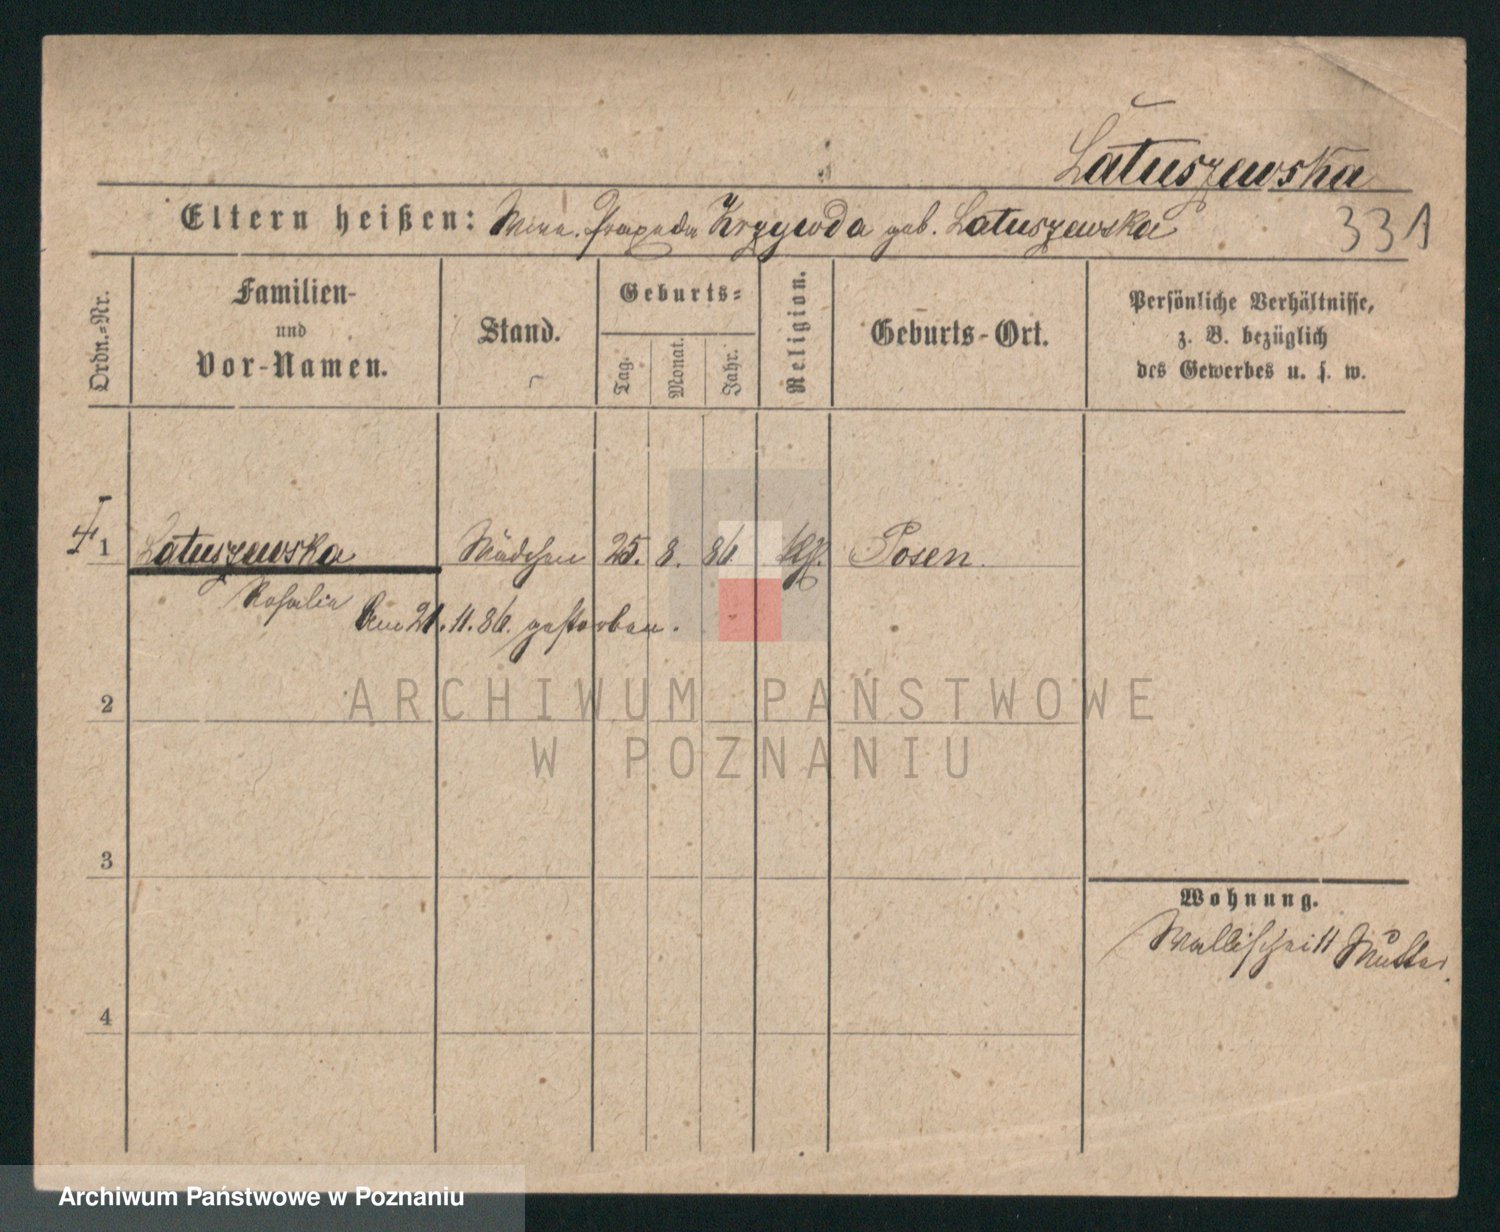 Łatuszewska
Eltern heißen: Wwe. Praxeda Krzywda geb. Łatuszewska 331
Ordn.-Nr.
Familien-
und
Vor-Namen.
Stand.
Geburts-
Tag.
Monat.
Jahr.
Religion.
Geburts-Ort.
Persönliche Verhältnisse,
z. B. bezüglich
des Gewerbes u. s. w.
1 Latuszewska Mädchen 25. 8. 86. kth. Posen.
Rosalie
Am 21.11.86. gestorben.
2
3
4
Wohnung.
Wallischei 11 Mutter.
ARCHIWUM PAŃSTWOWE
W POZNANIU
Archiwum Państwowe w Poznaniu